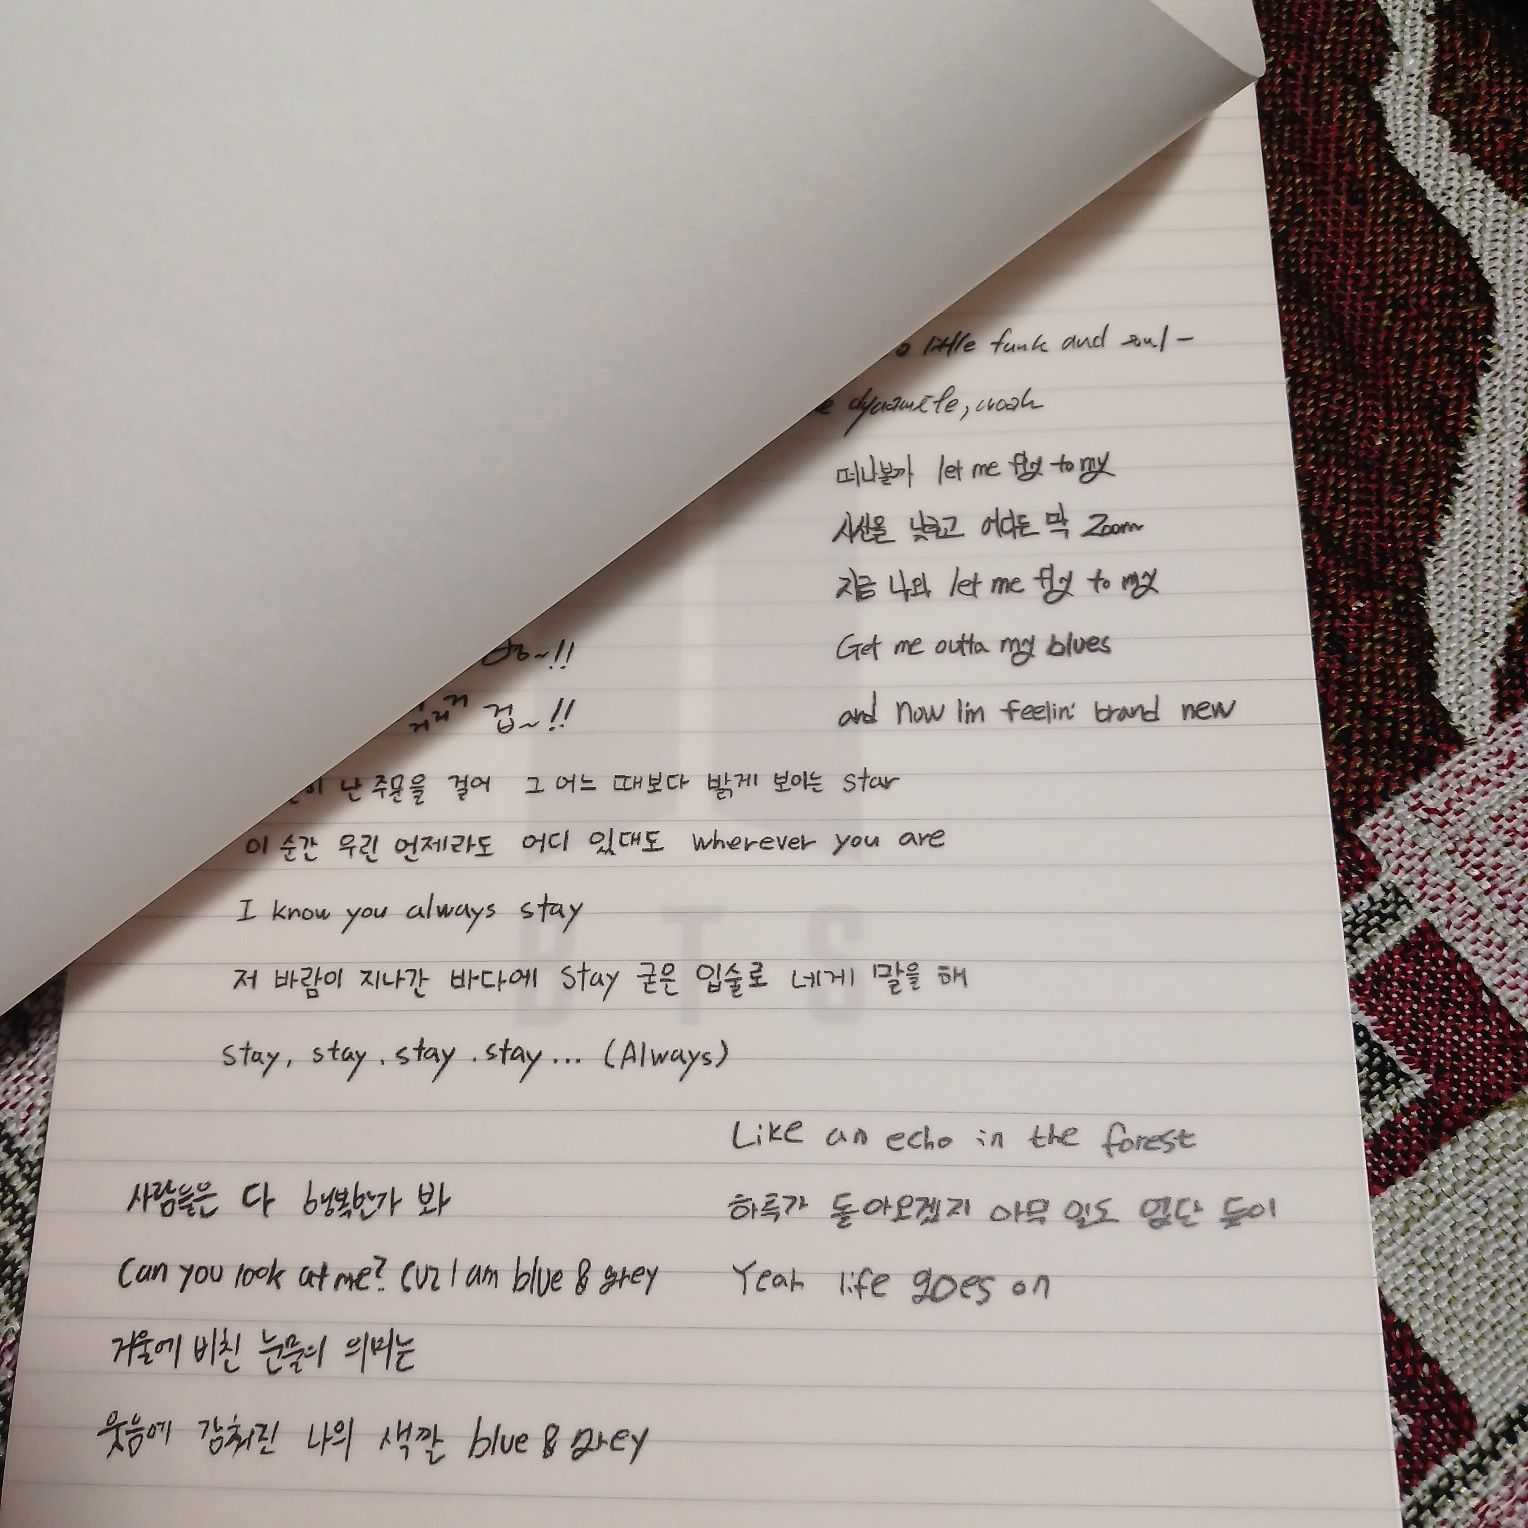 little funk and soul -
dynamite, woah
떠나볼까 let me fly to my
시선을 낮추고 어디든 막 Zoom
지금 나와 let me fly to my
Get me outta my blues
and now I'm feelin' brand new
~!!
겁~!!
난 주문을 걸어 그 어느 때보다 밝게 보이는 star
이 순간 우린 언제라도 어디 있대도 wherever you are
I know you always stay
저 바람이 지나간 바다에 Stay 굳은 입술로 네게 말을 해
Stay, stay. stay. stay... (Always)
Like an echo in the forest
하루가 돌아오겠지 아무 일도 없단 듯이
Yeah life goes on
사람들은 다 행복한가 봐
Can you look at me? cuz I am blue & grey
거울에 비친 눈물의 의미는
웃음에 감춰진 나의 색깔 blue & grey
BTS